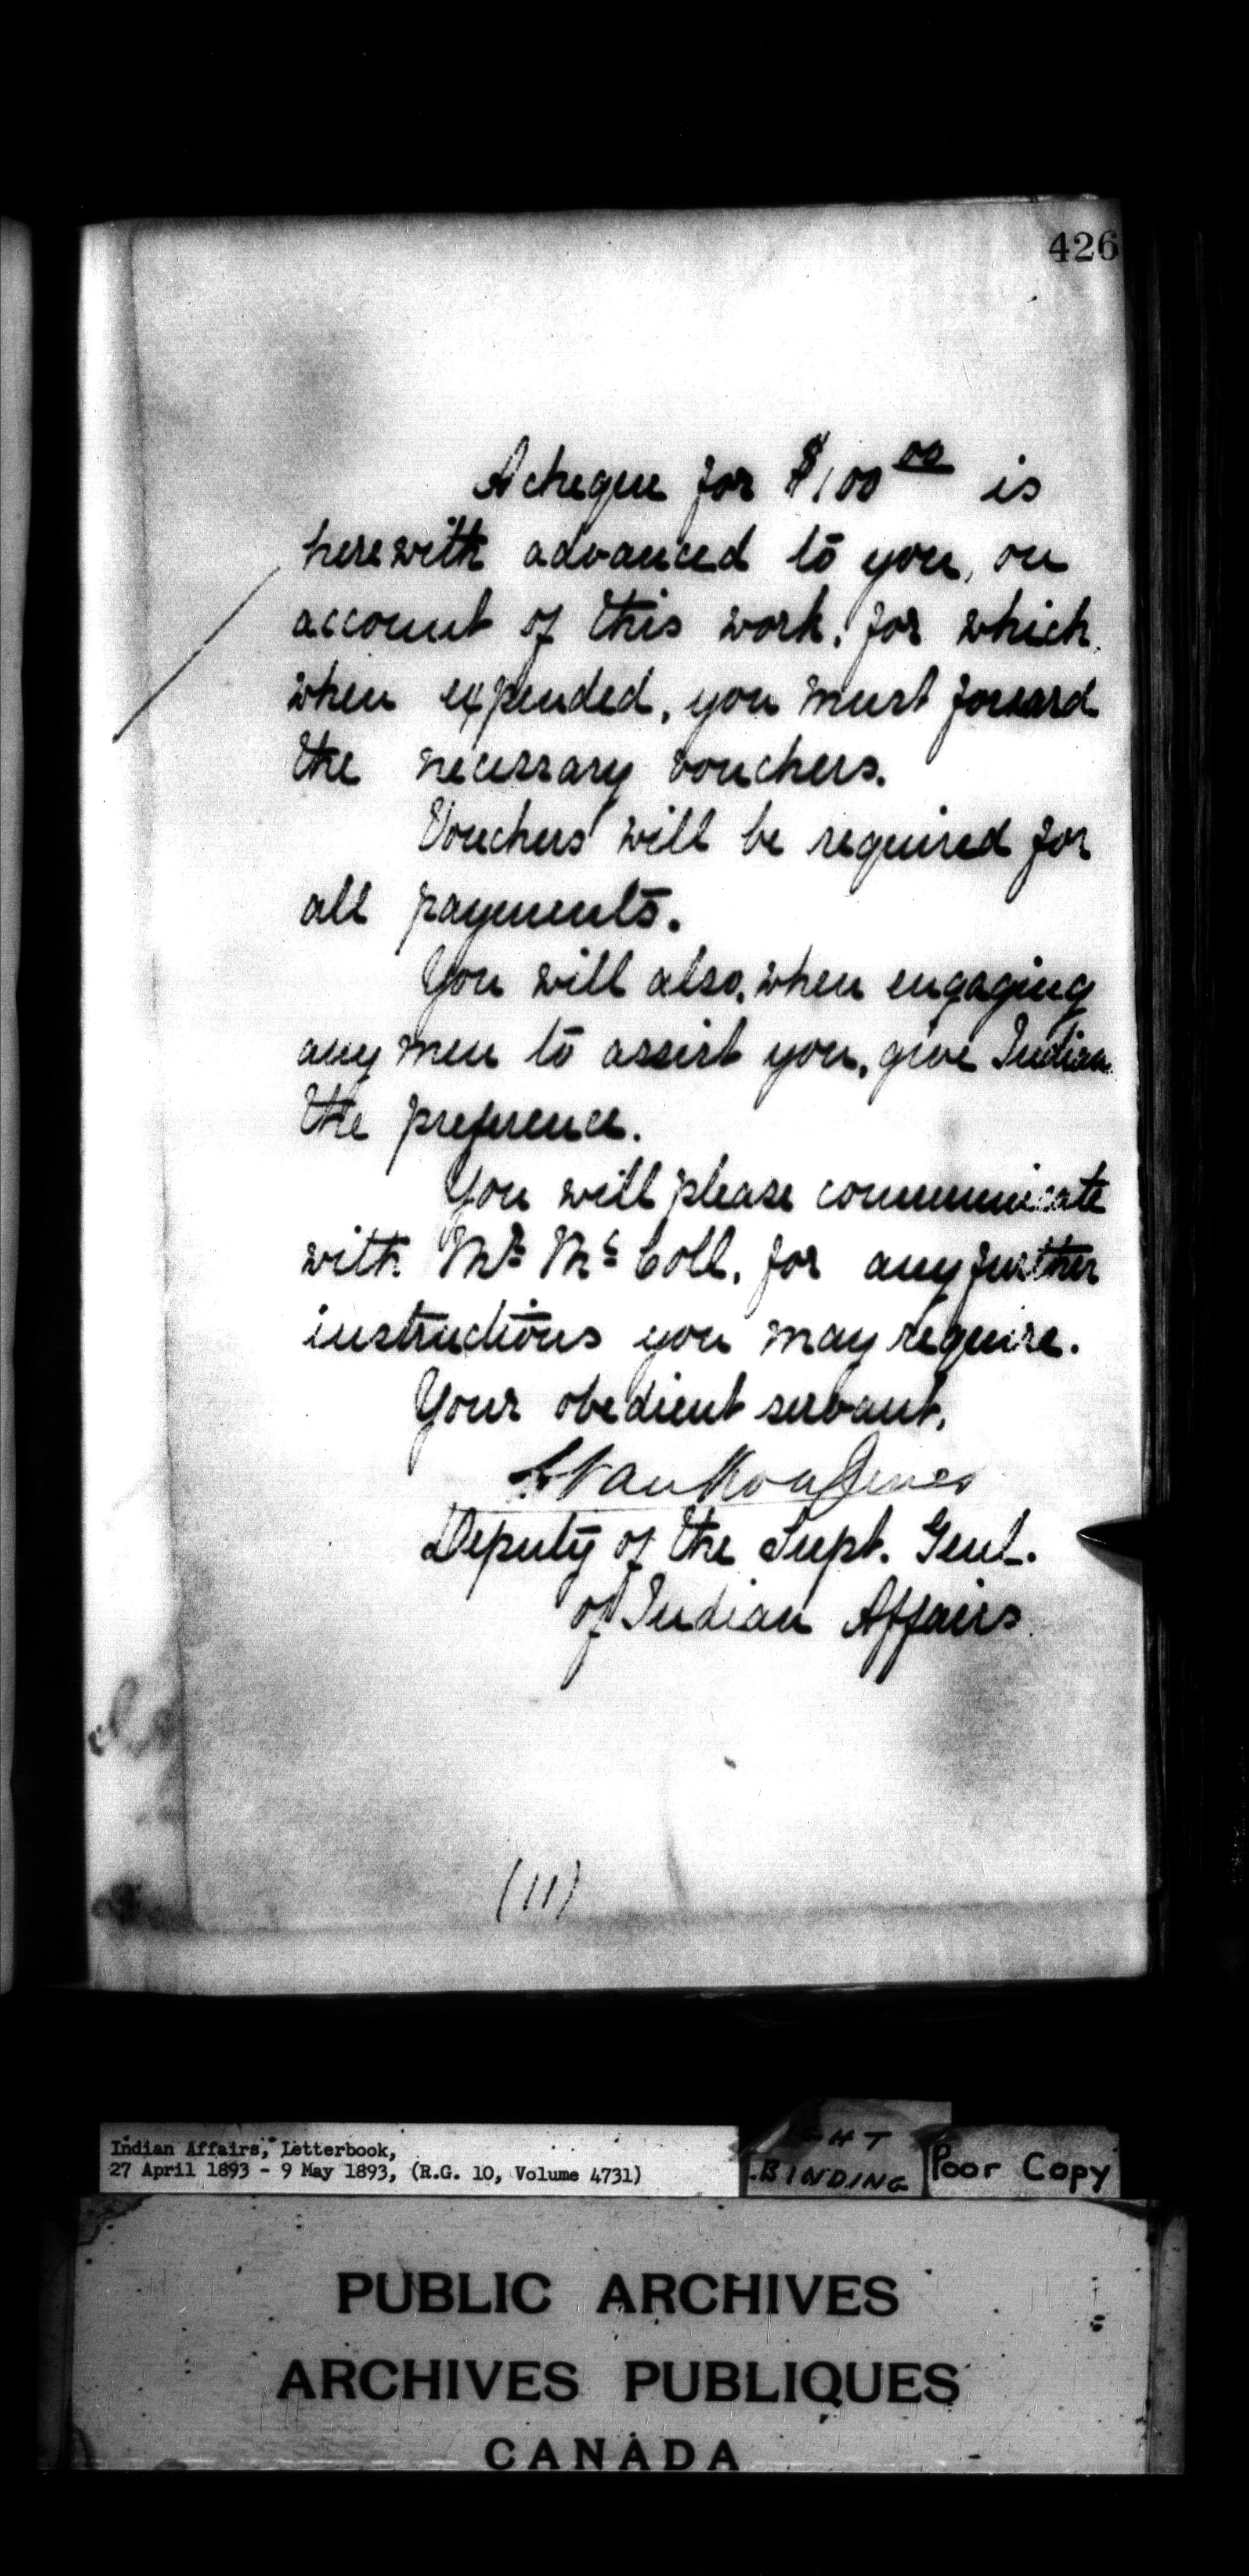 426
A cheque for $100 00 is
herewith advanced to you, on
account of this work, for which,
when expended, you must forward
the necessary vouchers.
Vouchers will be required for
all payments.
You will also, when engaging
any men to assist you, give Indians
the preference.
You will please communicate
with Mr. Mc Coll, for any further
instructions you may require.
Your obedient servant,
L Vankoughnet
Deputy of the Supt. Genl.
of Indian Affairs.
(11)
Indian Affairs, Letterbook,
27 April 1893 - 9 May 1893, (R.G. 10, Volume 4731)
BINDING
Poor Copy
PUBLIC ARCHIVES
ARCHIVES PUBLIQUES
CANADA